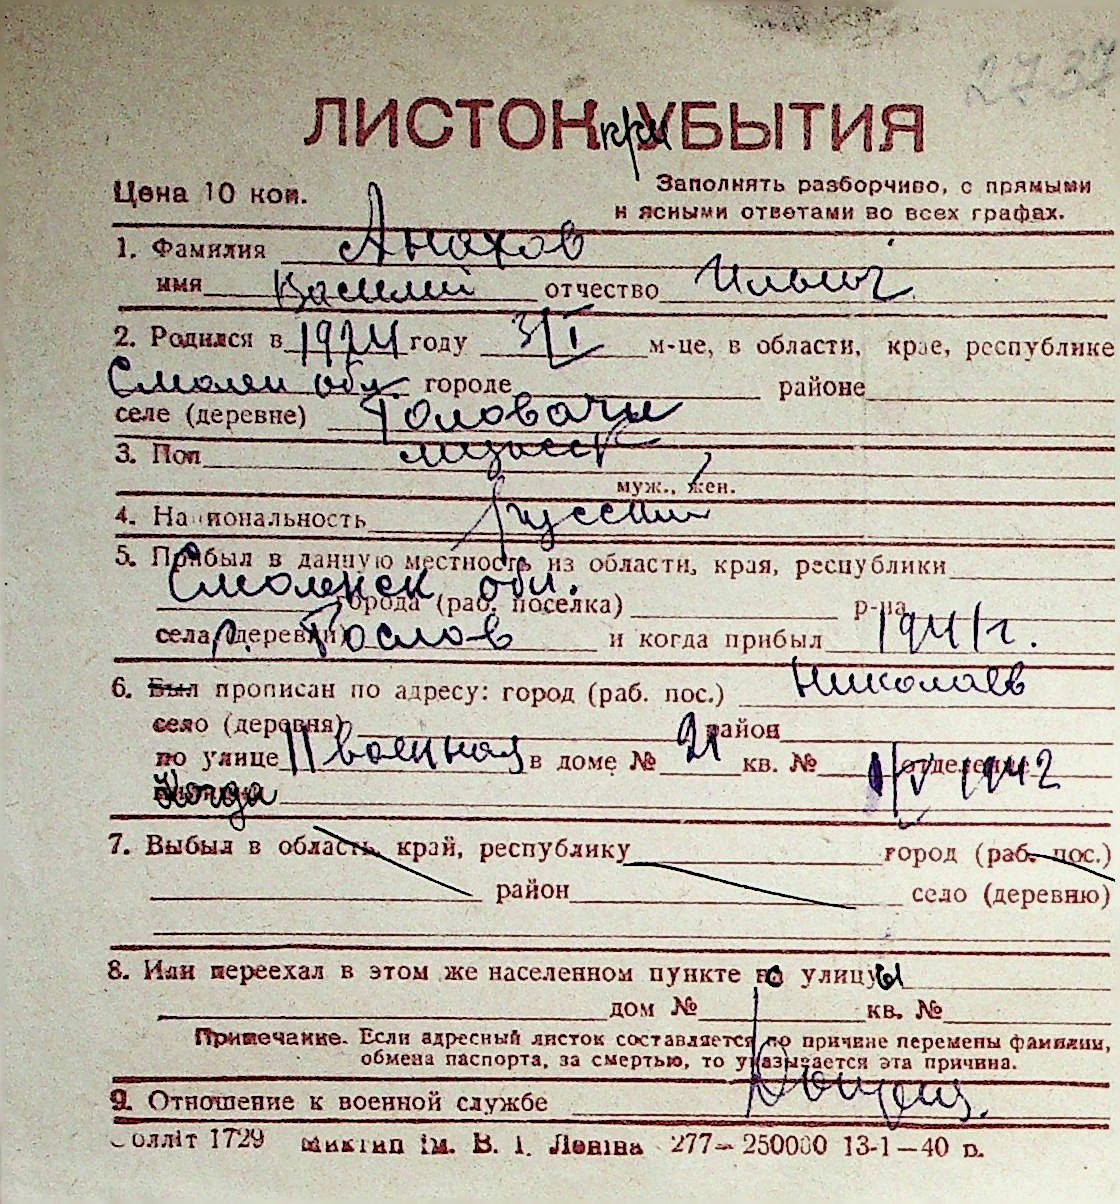 2737
ЛИСТОК при УБЫТИЯ
Цена 10 коп.
Заполнять разборчиво, с прямыми
и ясными ответами во всех графах.
1. Фамилия Анохов
имя Василий отчество Ильич
2. Родился в 1924 году 3/I м-це, в области, крае, республике
Смолен обл городе районе
селе (деревне) Головачи
3. Пол мужск
муж., жен.
4. Национальность русский
5. Прибыл в данную местность из области, края, республики
Смоленск обл.
города (раб. поселка) р-на
села, (деревни) г. Рослов и когда прибыл 1941 г.
6. Был прописан по адресу: город (раб. пос.) Николаев
село (деревня) район
по улице II военная в доме № 21 кв. № отделение 1/V 1942
Когда
7. Выбыл в область, край, республику город (раб. пос.)
район село (деревню)
8. Или переехал в этом же населенном пункте со улицы
дом № кв. №
Примечание. Если адресный листок составляется по причине перемены фамилии,
обмена паспорта, за смертью, то указывается эта причина.
9. Отношение к военной службе
Облліт 1729 Миктип ім. В. І. Леніна 277—250000 13-1—40 р.